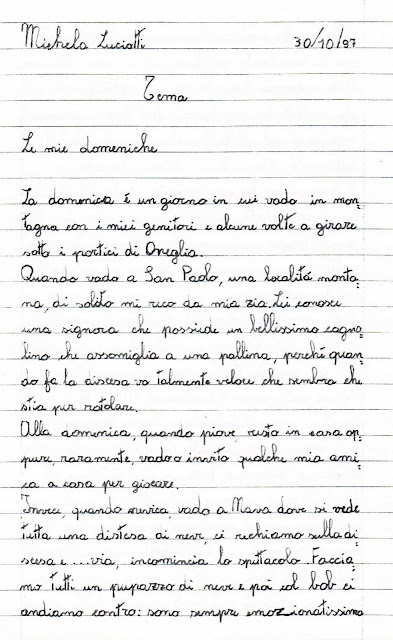 Michela Luciotti 30/10/97
Tema
Le mie domeniche
La domenica è un giorno in cui vado in mon-
tagna con i miei genitori e alcune volte a girare
sotto i portici di Oneglia.
Quando vado a San Paolo, una località monta-
na, di solito mi reco da mia zia. Lei conosce
una signora che possiede un bellissimo cagno-
lino che assomiglia a una pallina, perché quan-
do fa la discesa va talmente veloce che sembra che
stia per rotolare.
Alla domenica, quando piove, resto in casa op-
pure, raramente, vado o invito qualche mia ami-
ca a casa per giocare.
Invece, quando nevica, vado a Nava dove si vede
tutta una distesa di neve, ci rechiamo sulla di-
scesa e ... via, incomincia lo spettacolo. Faccia-
mo tutti un pupazzo di neve e poi col bob ci
andiamo contro: sono sempre emozionatissima